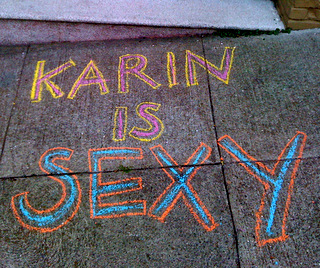 KARIN
IS
SEXY